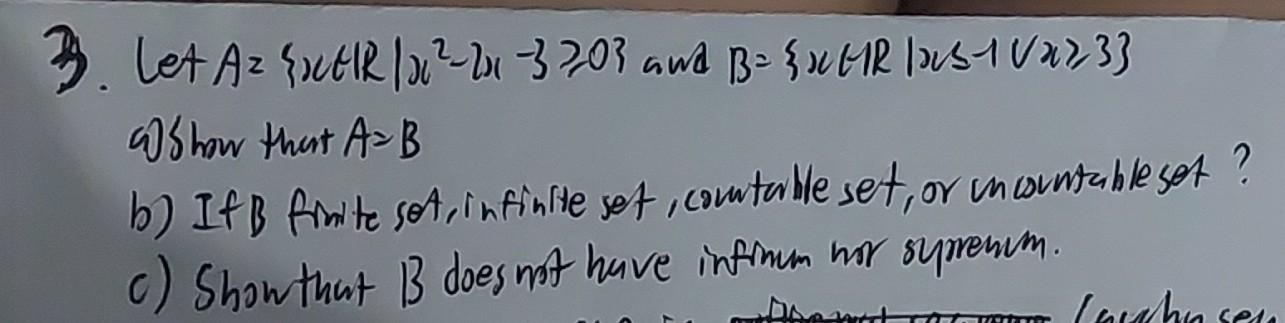 3. Let A = {x∈ℝ | x²-2x-3 ≥ 0} and B = {x∈ℝ | x≤-1 ∨ x≥3}
a) Show that A=B
b) If B finite set, infinite set, countable set, or uncountable set ?
c) Show that B does not have infimum nor supremum.